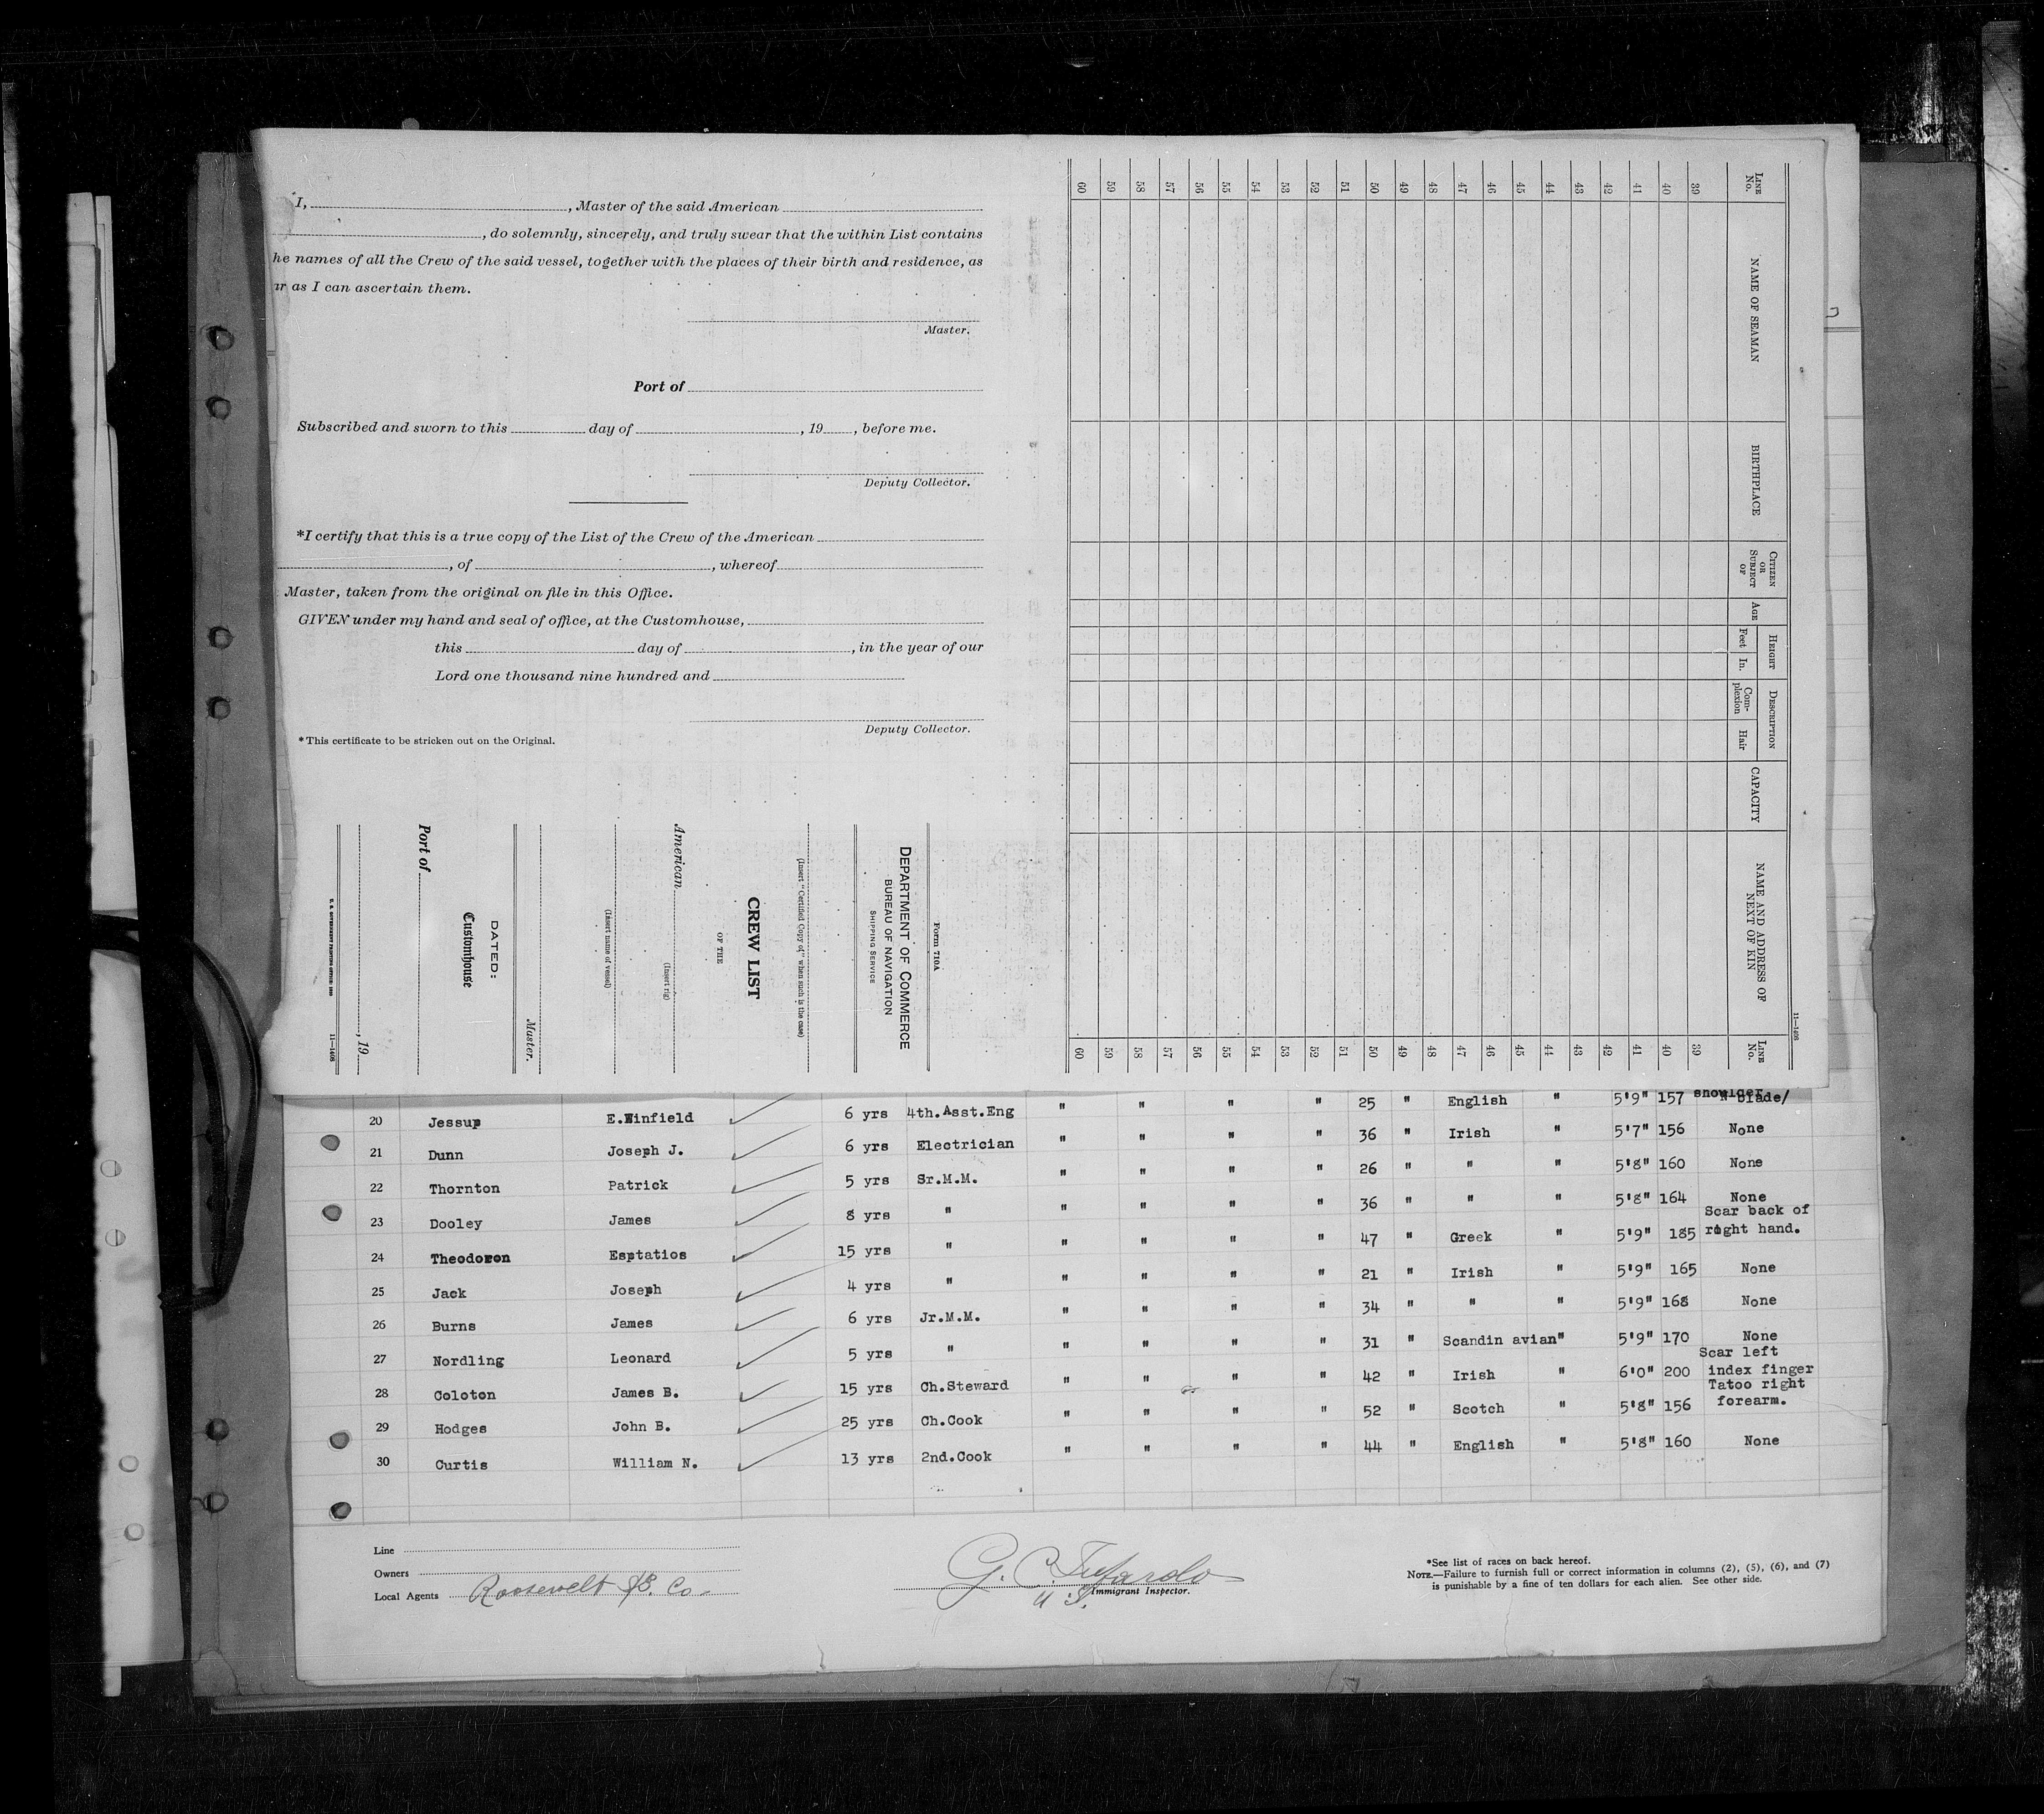 I, , Master of the said American
, do solemnly, sincerely, and truly swear that the within List contains
he names of all the Crew of the said vessel, together with the places of their birth and residence, as
ar as I can ascertain them.
Master.
Port of
Subscribed and sworn to this day of , 19 , before me.
Deputy Collector.
*I certify that this is a true copy of the List of the Crew of the American
, of , whereof
Master, taken from the original on file in this Office.
GIVEN under my hand and seal of office, at the Customhouse,
this day of , in the year of our
Lord one thousand nine hundred and
Deputy Collector.
*This certificate to be stricken out on the Original.
Form 710A
DEPARTMENT OF COMMERCE
BUREAU OF NAVIGATION
SHIPPING SERVICE
(Insert "Certified Copy of" when such is the case)
CREW LIST
OF THE
American
(Insert rig)
(Insert name of vessel)
Master.
DATED:
Customhouse
Port of
, 19
11—1408
LINE No. NAME OF SEAMAN BIRTHPLACE CITIZEN OR SUBJECT OF AGE HEIGHT Feet In. DESCRIPTION Complexion Hair CAPACITY NAME AND ADDRESS OF NEXT OF KIN LINE No.
39 39
40 40
41 41
42 42
43 43
44 44
45 45
46 46
47 47
48 48
49 49
50 50
51 51
52 52
53 53
54 54
55 55
56 56
57 57
58 58
59 59
60 60
shoulder
20 Jessup E.Winfield 6 yrs 4th.Asst.Eng " " " " 25 " English " 5'9" 157 " blade/
21 Dunn Joseph J. 6 yrs Electrician " " " " 36 " Irish " 5'7" 156 None
22 Thornton Patrick 5 yrs Sr.M.M. " " " " 26 " " " 5'8" 160 None
23 Dooley James 8 yrs " " " " " 36 " " " 5'8" 164 None
Scar back of
24 Theodoron Esptatios 15 yrs " " " " " 47 " Greek " 5'9" 185 right hand.
25 Jack Joseph 4 yrs " " " " " 21 " Irish " 5'9" 165 None
26 Burns James 6 yrs Jr.M.M. " " " " 34 " " " 5'9" 168 None
27 Nordling Leonard 5 yrs " " " " " 31 " Scandin avian" 5'9" 170 None
Scar left
28 Coloton James B. 15 yrs Ch.Steward " " " " 42 " Irish " 6'0" 200 index finger
Tatoo right
29 Hodges John B. 25 yrs Ch.Cook " " " " 52 " Scotch " 5'8" 156 forearm.
30 Curtis William N. 13 yrs 2nd.Cook " " " " 44 " English " 5'8" 160 None
Line
Owners
Local Agents Roosevelt SS. Co.
U S. Immigrant Inspector.
*See list of races on back hereof.
NOTE.—Failure to furnish full or correct information in columns (2), (5), (6), and (7)
is punishable by a fine of ten dollars for each alien. See other side.